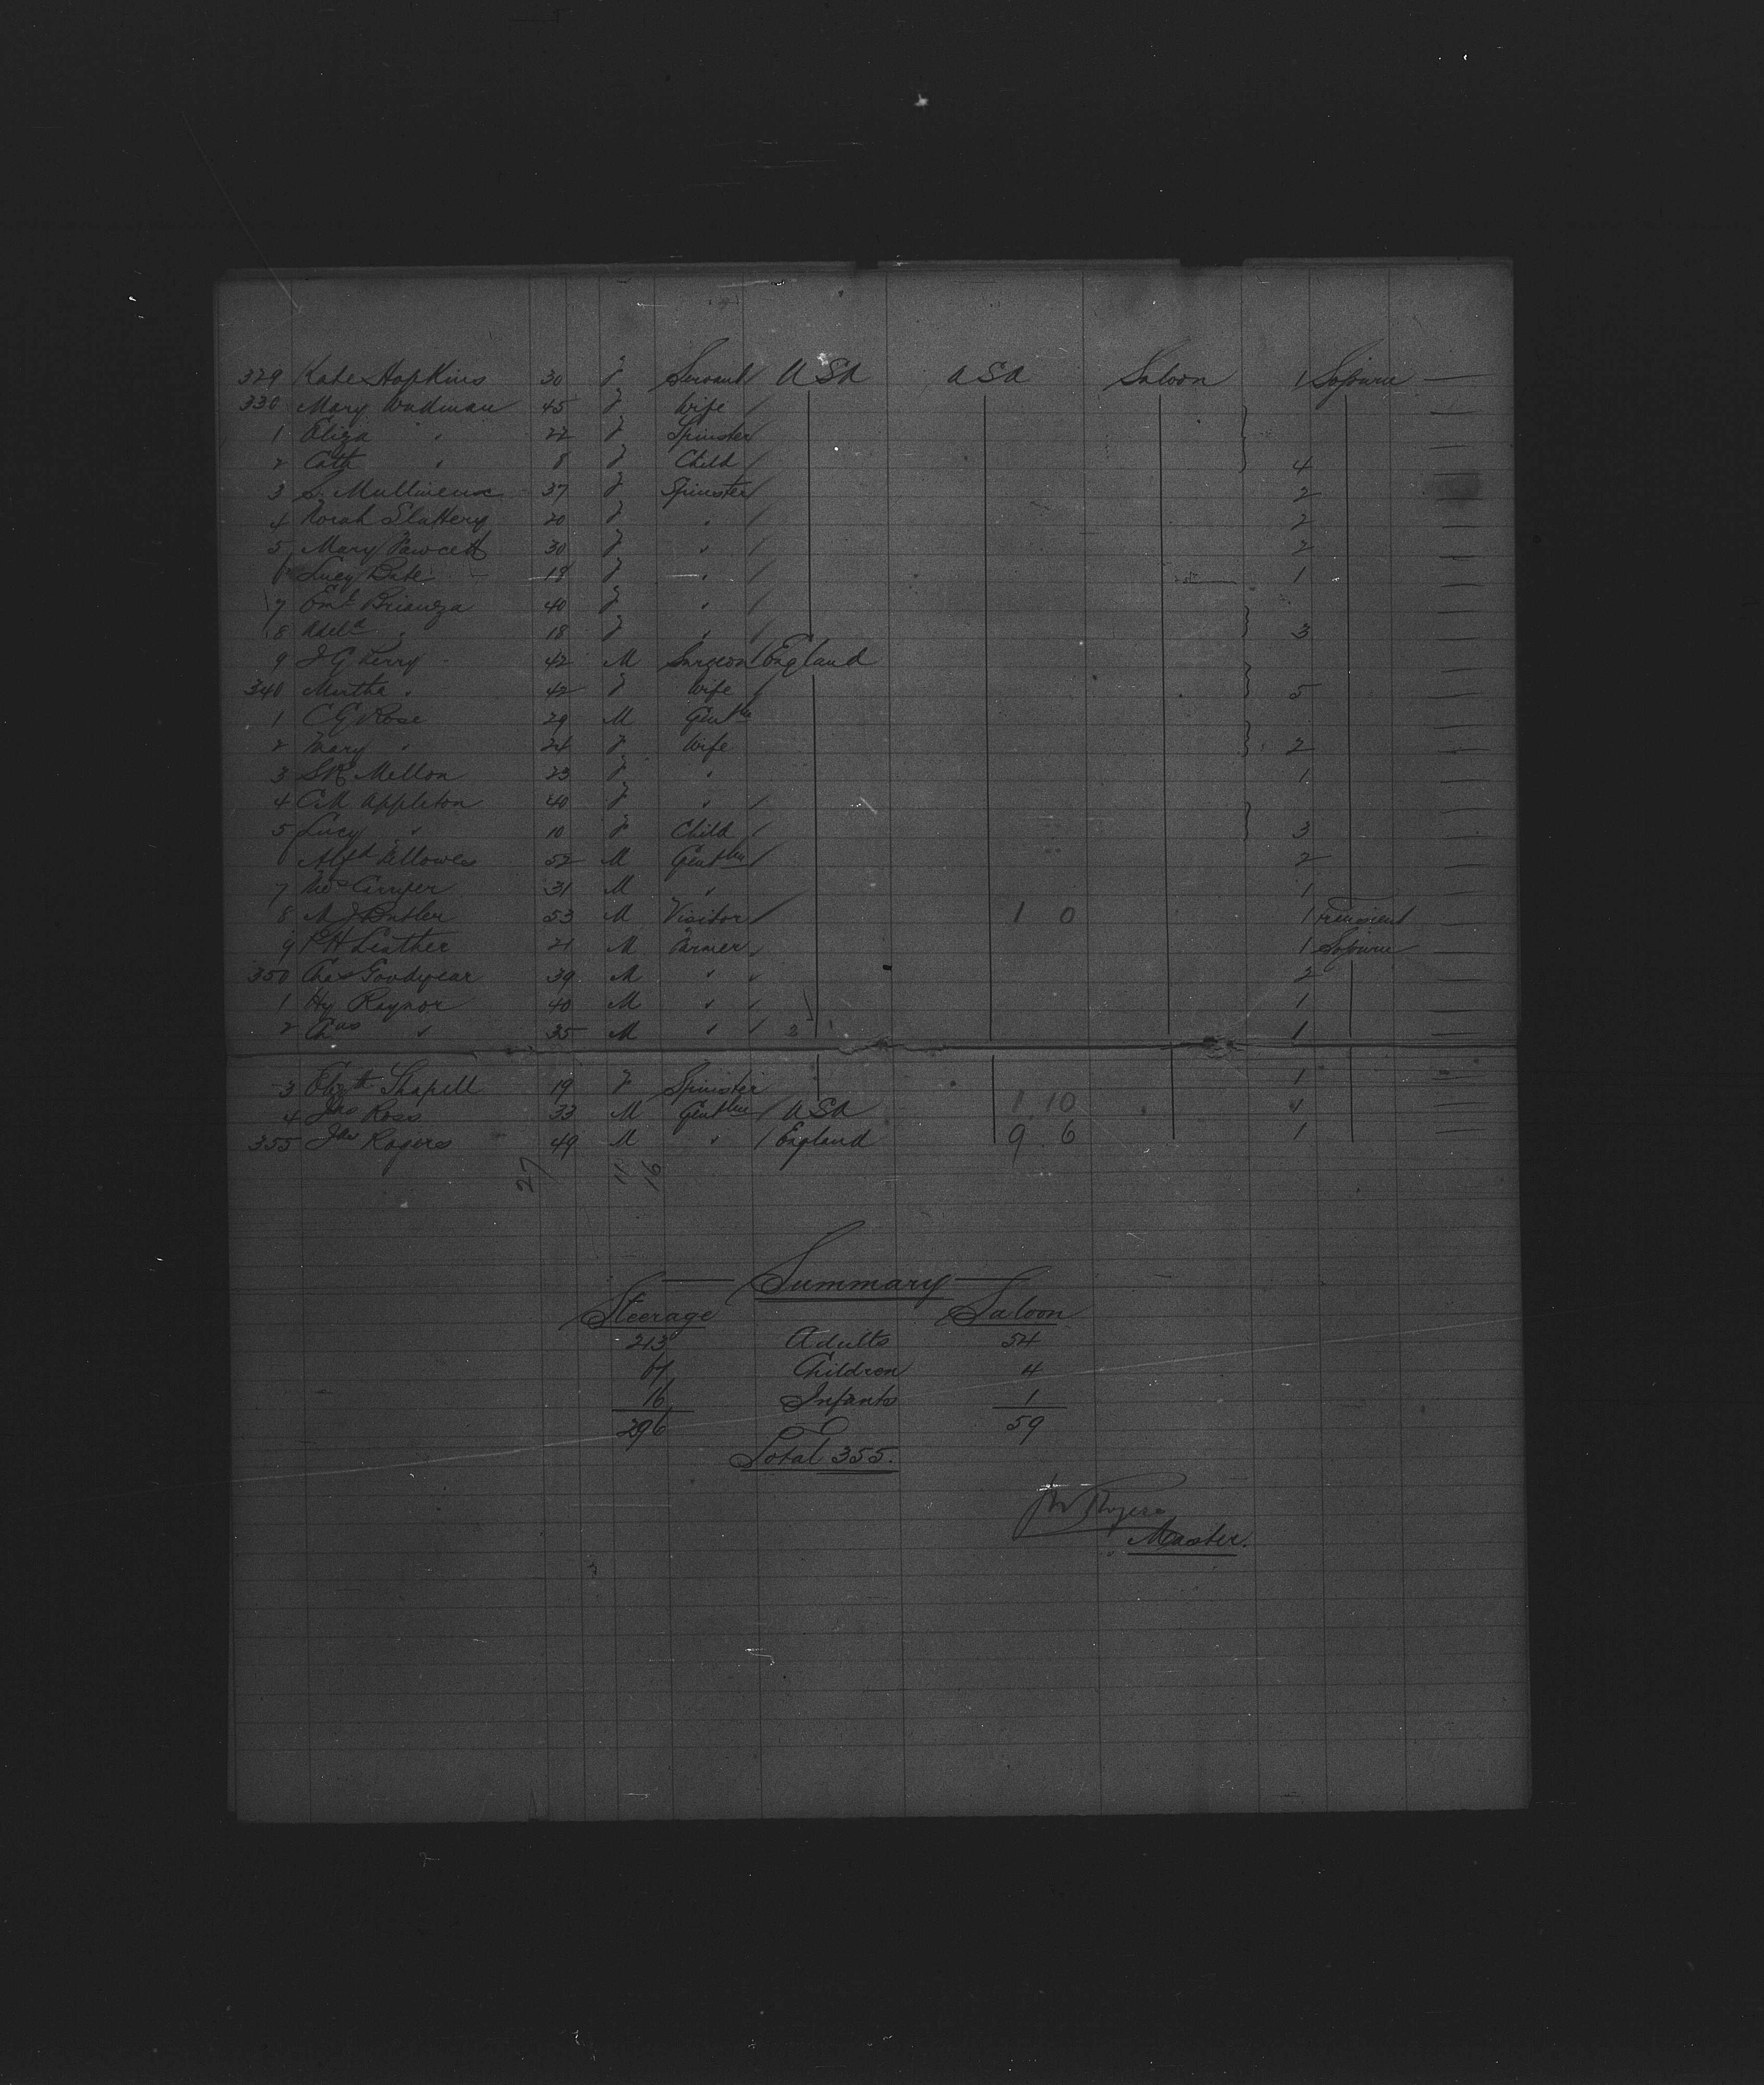 329 Kate Hopkins 30 f Servant / USA USA Saloon 1 Sojourn —
330 Mary Wadman 45 f Wife /
1 Eliza " 22 f Spinster /
2 Cath " 8 f Child / 4
3 S. Mullineux 37 f Spinster / 2
4 Norah Slattery 20 f " / 2
5 Mary Fawcett 30 f " / 2
6 Lucy 18 f " / 1
7 40 f " /
8 18 f " / 3
9 J G Perry 42 M Surgeon / England
340 Martha " 42 f Wife / 5
1 C G Rose 29 M Gentln
2 Mary " 24 f Wife 2
3 Mellon 23 f " 1
4 C M Appleton 40 f " /
5 Lucy " 10 f Child / 3
6 Alfd Fellowes 52 M Gentln / 2
7 31 M " 1
8 M J Butler 53 M Visitor / 1 0 1 Transient
9 P H Leather 21 M Farmer / 1 Sojourn
350 Chas Goodyear 39 M " " 2
1 Hy Raynor 40 M " / 1
2 Chas " 35 M " / 3 1
3 Elizth Shapell 19 f Spinster 1
4 Jas Ross 33 M Gentln / USA 1.10 1
355 Jas Rogers 49 M " / England 9 6 1
27 11 16
— Summary —
Steerage Saloon
213 Adults 54
67 Children 4
16 Infants 1
296 59
Total 355.
Rogers
Master.